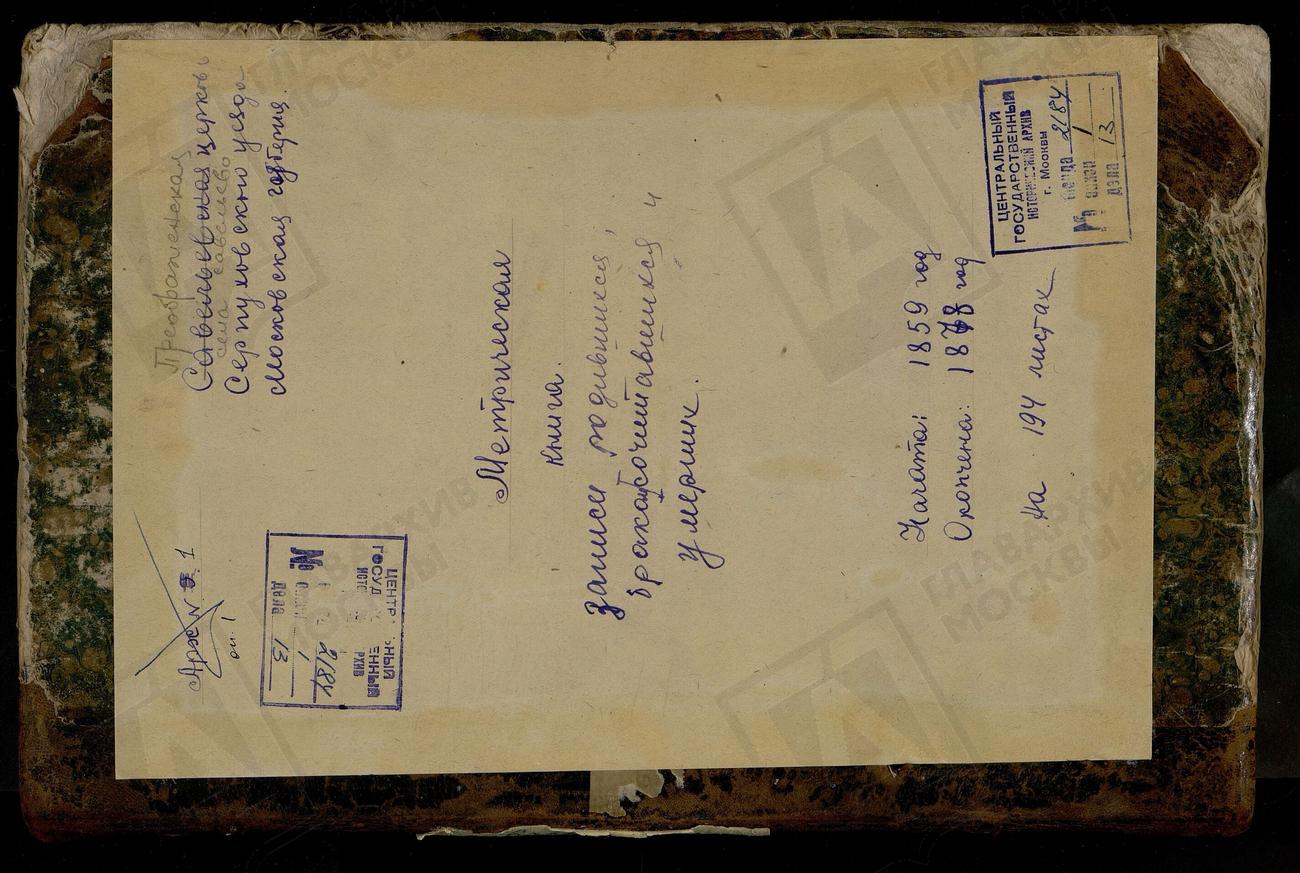 Преображенская
Савельевская церковь
села Савельево
Серпуховского уезда
Московская губерния.
ЦЕНТРАЛЬНЫЙ
ГОСУДАРСТВЕННЫЙ
ИСТОРИЧЕСКИЙ АРХИВ
г. Москвы
№ фонда 2184
описи 1
дела 13
Арх № 1
оп. 1
Метрическая
книга.
записи родившихся,
бракосочетавшихся и
умерших.
Начата: 1859 год
Окончена: 1878 год
На 194 листах
ЦЕНТР НЫЙ
ГОСУД ЕННЫЙ
ИСТО РХИВ
2184
№ 1
дела 13
ГЛАВАРХИВ
МОСКВЫ
ГЛАВАРХИВ
МОСКВЫ
ГЛАВАРХИВ
МОСКВЫ
ГЛАВАРХИВ
МОСКВЫ